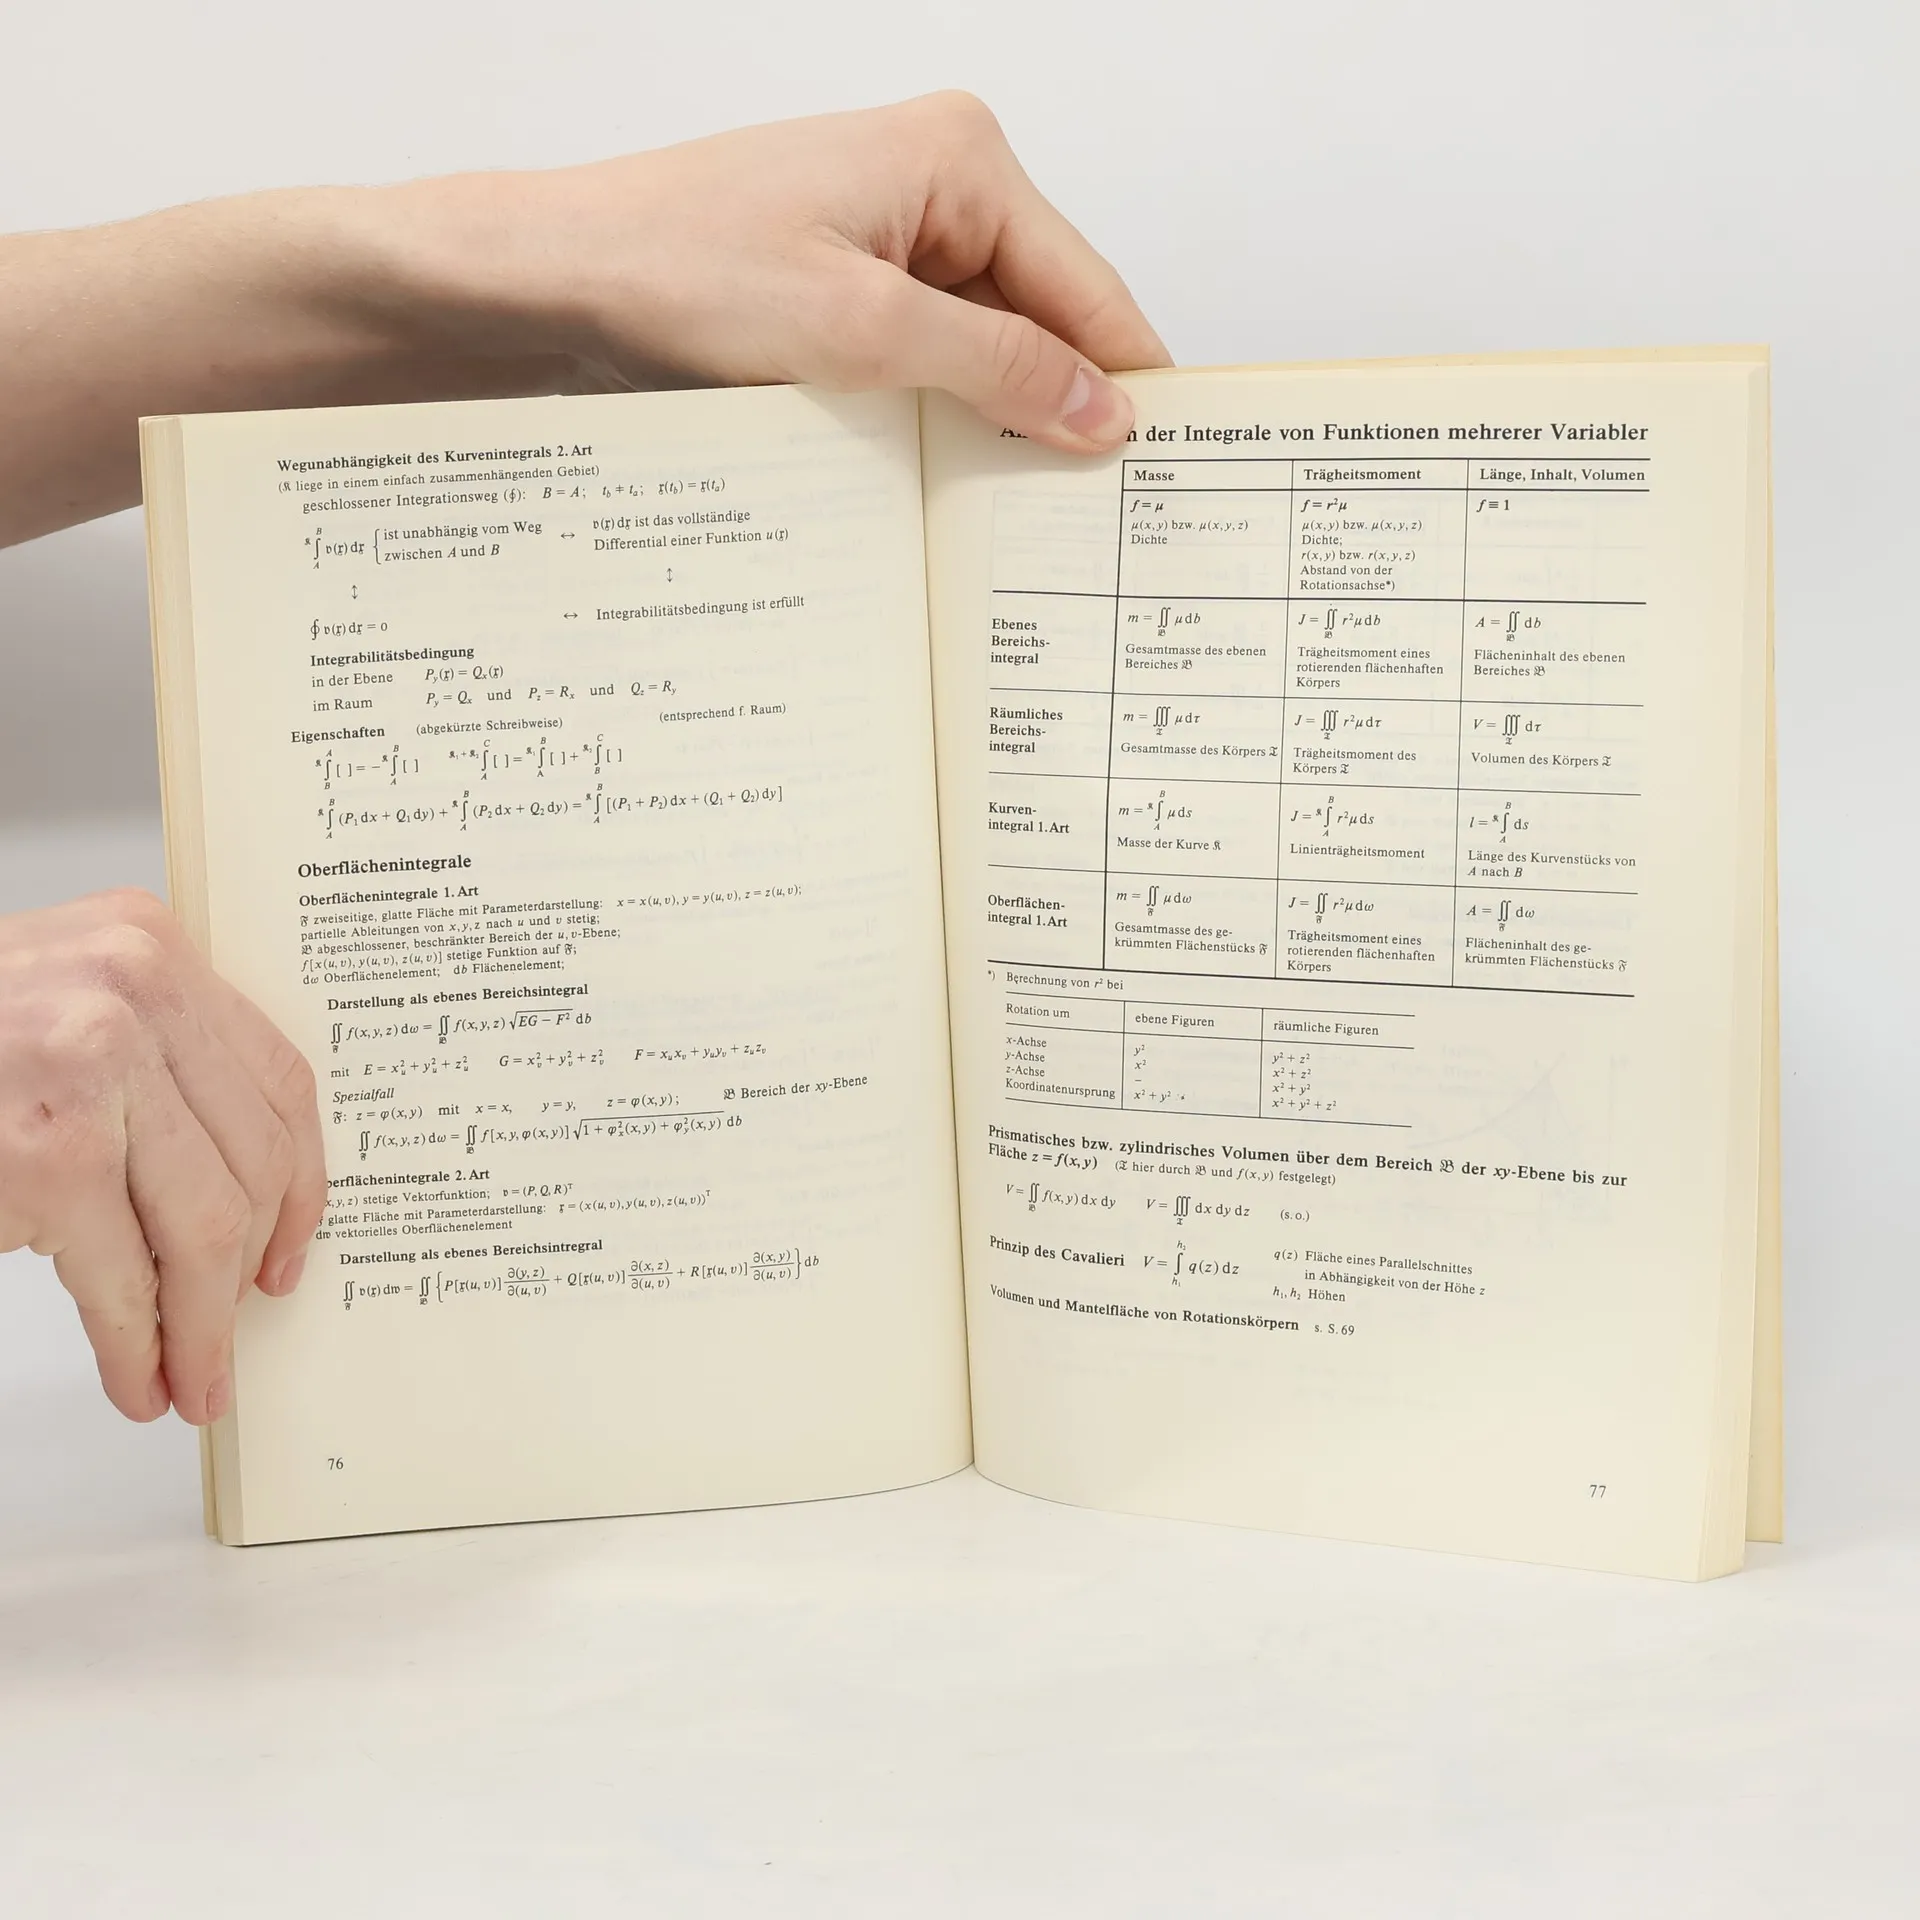 Wegunabhängigkeit des Kurvenintegrals 2. Art
(𝔎 liege in einem einfach zusammenhängenden Gebiet)
geschlossener Integrationsweg (∮): B = A; t_b ≠ t_a; 𝔵(t_b) = 𝔵(t_a)
𝔎∫_A^B 𝔳(𝔵) d𝔵 { ist unabhängig vom Weg zwischen A und B ↔ 𝔳(𝔵) d𝔵 ist das vollständige Differential einer Funktion u(𝔵)
↕ ↕
∮ 𝔳(𝔵) d𝔵 = 0 ↔ Integrabilitätsbedingung ist erfüllt
Integrabilitätsbedingung
in der Ebene P_y(𝔵) = Q_x(𝔵)
im Raum P_y = Q_x und P_z = R_x und Q_z = R_y
Eigenschaften (abgekürzte Schreibweise) (entsprechend f. Raum)
𝔎∫_B^A [ ] = − 𝔎∫_A^B [ ] 𝔎₁+𝔎₂∫_A^C [ ] = 𝔎₁∫_A^B [ ] + 𝔎₂∫_B^C [ ]
𝔎∫_A^B (P₁ dx + Q₁ dy) + 𝔎∫_A^B (P₂ dx + Q₂ dy) = 𝔎∫_A^B [(P₁ + P₂) dx + (Q₁ + Q₂) dy]
Oberflächenintegrale
Oberflächenintegrale 1. Art
𝔉 zweiseitige, glatte Fläche mit Parameterdarstellung: x = x(u, v), y = y(u, v), z = z(u, v);
partielle Ableitungen von x, y, z nach u und v stetig;
𝔅 abgeschlossener, beschränkter Bereich der u, v-Ebene;
f[x(u, v), y(u, v), z(u, v)] stetige Funktion auf 𝔉;
dω Oberflächenelement; db Flächenelement;
Darstellung als ebenes Bereichsintegral
∬_𝔉 f(x, y, z) dω = ∬_𝔅 f(x, y, z) √(EG − F²) db
mit E = x_u² + y_u² + z_u² G = x_v² + y_v² + z_v² F = x_u x_v + y_u y_v + z_u z_v
Spezialfall
𝔉: z = φ(x, y) mit x = x, y = y, z = φ(x, y); 𝔅 Bereich der xy-Ebene
∬_𝔉 f(x, y, z) dω = ∬_𝔅 f[x, y, φ(x, y)] √(1 + φ_x²(x, y) + φ_y²(x, y)) db
berflächenintegrale 2. Art
x, y, z) stetige Vektorfunktion; 𝔳 = (P, Q, R)ᵀ
glatte Fläche mit Parameterdarstellung: 𝔵 = (x(u, v), y(u, v), z(u, v))ᵀ
d𝔴 vektorielles Oberflächenelement
Darstellung als ebenes Bereichsintregral
∬_𝔉 𝔳(𝔵) d𝔴 = ∬_𝔅 {P[𝔵(u, v)] ∂(y, z)/∂(u, v) + Q[𝔵(u, v)] ∂(x, z)/∂(u, v) + R[𝔵(u, v)] ∂(x, y)/∂(u, v)} db
76
n der Integrale von Funktionen mehrerer Variabler
Masse Trägheitsmoment Länge, Inhalt, Volumen
f = μ f = r²μ f ≡ 1
μ(x, y) bzw. μ(x, y, z) μ(x, y) bzw. μ(x, y, z)
Dichte Dichte;
r(x, y) bzw. r(x, y, z)
Abstand von der
Rotationsachse*)
Ebenes Bereichs-integral
m = ∬_𝔅 μ db J = ∬_𝔅 r²μ db A = ∬_𝔅 db
Gesamtmasse des ebenen Bereiches 𝔅
Trägheitsmoment eines rotierenden flächenhaften Körpers
Flächeninhalt des ebenen Bereiches 𝔅
Räumliches Bereichs-integral
m = ∭_𝔗 μ dτ J = ∭_𝔗 r²μ dτ V = ∭_𝔗 dτ
Gesamtmasse des Körpers 𝔗
Trägheitsmoment des Körpers 𝔗
Volumen des Körpers 𝔗
Kurven-integral 1. Art
m = 𝔎∫_A^B μ ds J = 𝔎∫_A^B r²μ ds l = 𝔎∫_A^B ds
Masse der Kurve 𝔎
Linienträgheitsmoment
Länge des Kurvenstücks von A nach B
Oberflächen-integral 1. Art
m = ∬_𝔉 μ dω J = ∬_𝔉 r²μ dω A = ∬_𝔉 dω
Gesamtmasse des ge-krümmten Flächenstücks 𝔉
Trägheitsmoment eines rotierenden flächenhaften Körpers
Flächeninhalt des ge-krümmten Flächenstücks 𝔉
*) Berechnung von r² bei
Rotation um ebene Figuren räumliche Figuren
x-Achse y² y² + z²
y-Achse x² x² + z²
z-Achse – x² + y²
Koordinatenursprung x² + y² x² + y² + z²
Prismatisches bzw. zylindrisches Volumen über dem Bereich 𝔅 der xy-Ebene bis zur
Fläche z = f(x, y) (𝔗 hier durch 𝔅 und f(x, y) festgelegt)
V = ∬_𝔅 f(x, y) dx dy V = ∭_𝔗 dx dy dz (s. o.)
Prinzip des Cavalieri V = ∫_{h₁}^{h₂} q(z) dz q(z) Fläche eines Parallelschnittes
in Abhängigkeit von der Höhe z
h₁, h₂ Höhen
Volumen und Mantelfläche von Rotationskörpern s. S. 69
77